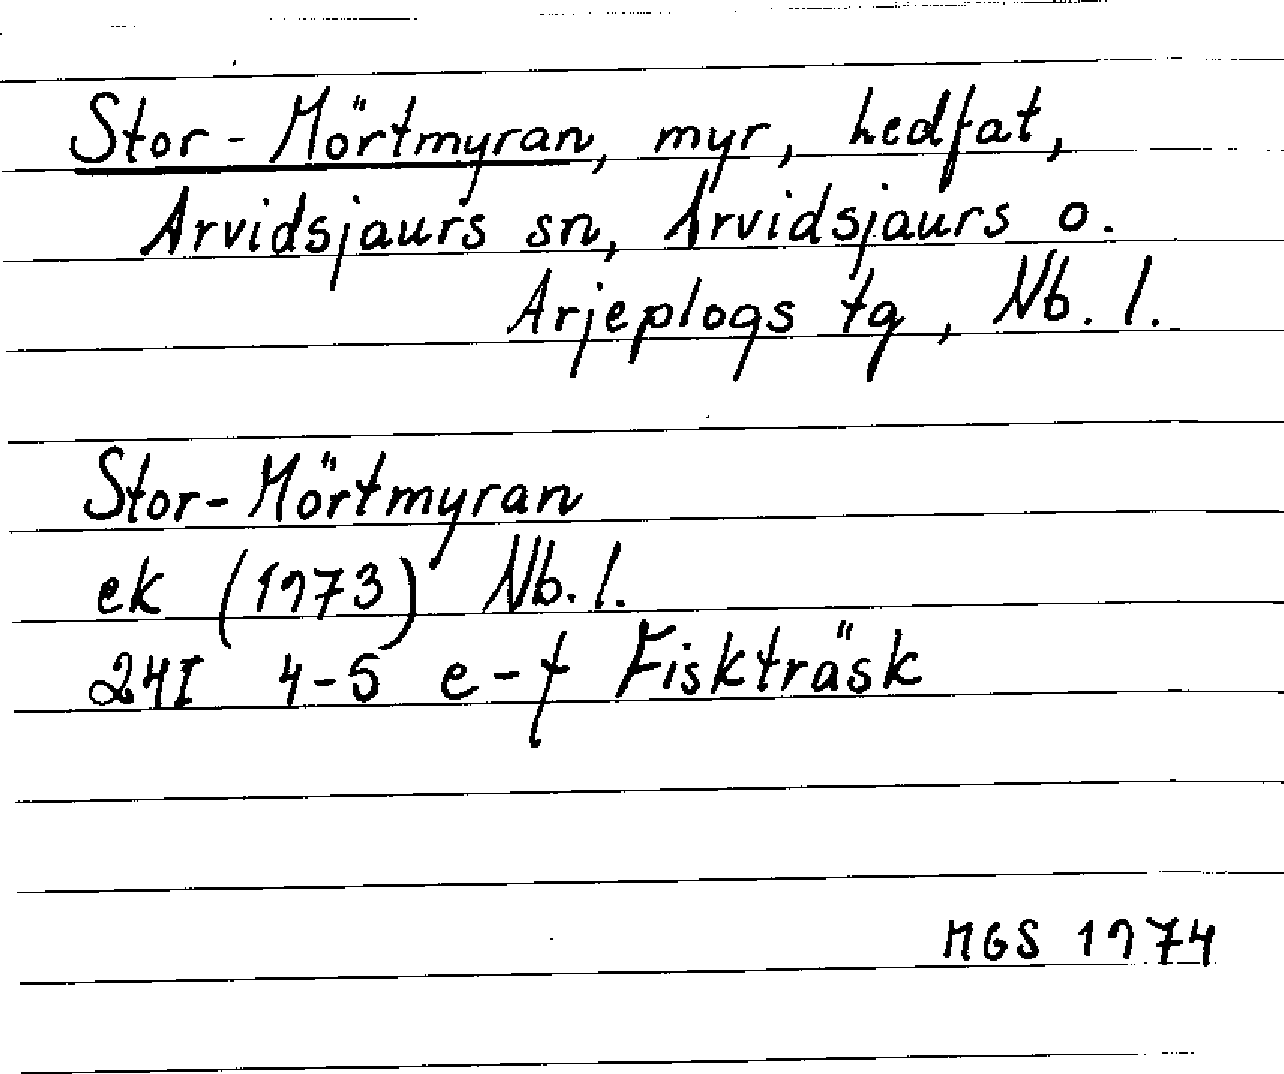 Stor-Mörtmyran, myr, Ledfat,
Arvidsjaurs sn, Arvidsjaurs o.
Arjeplogs tg, Nb. l.
Stor-Mörtmyran
ek (1973) Nb. l.
24I 4-5 e-f Fiskträsk
MGS 1974